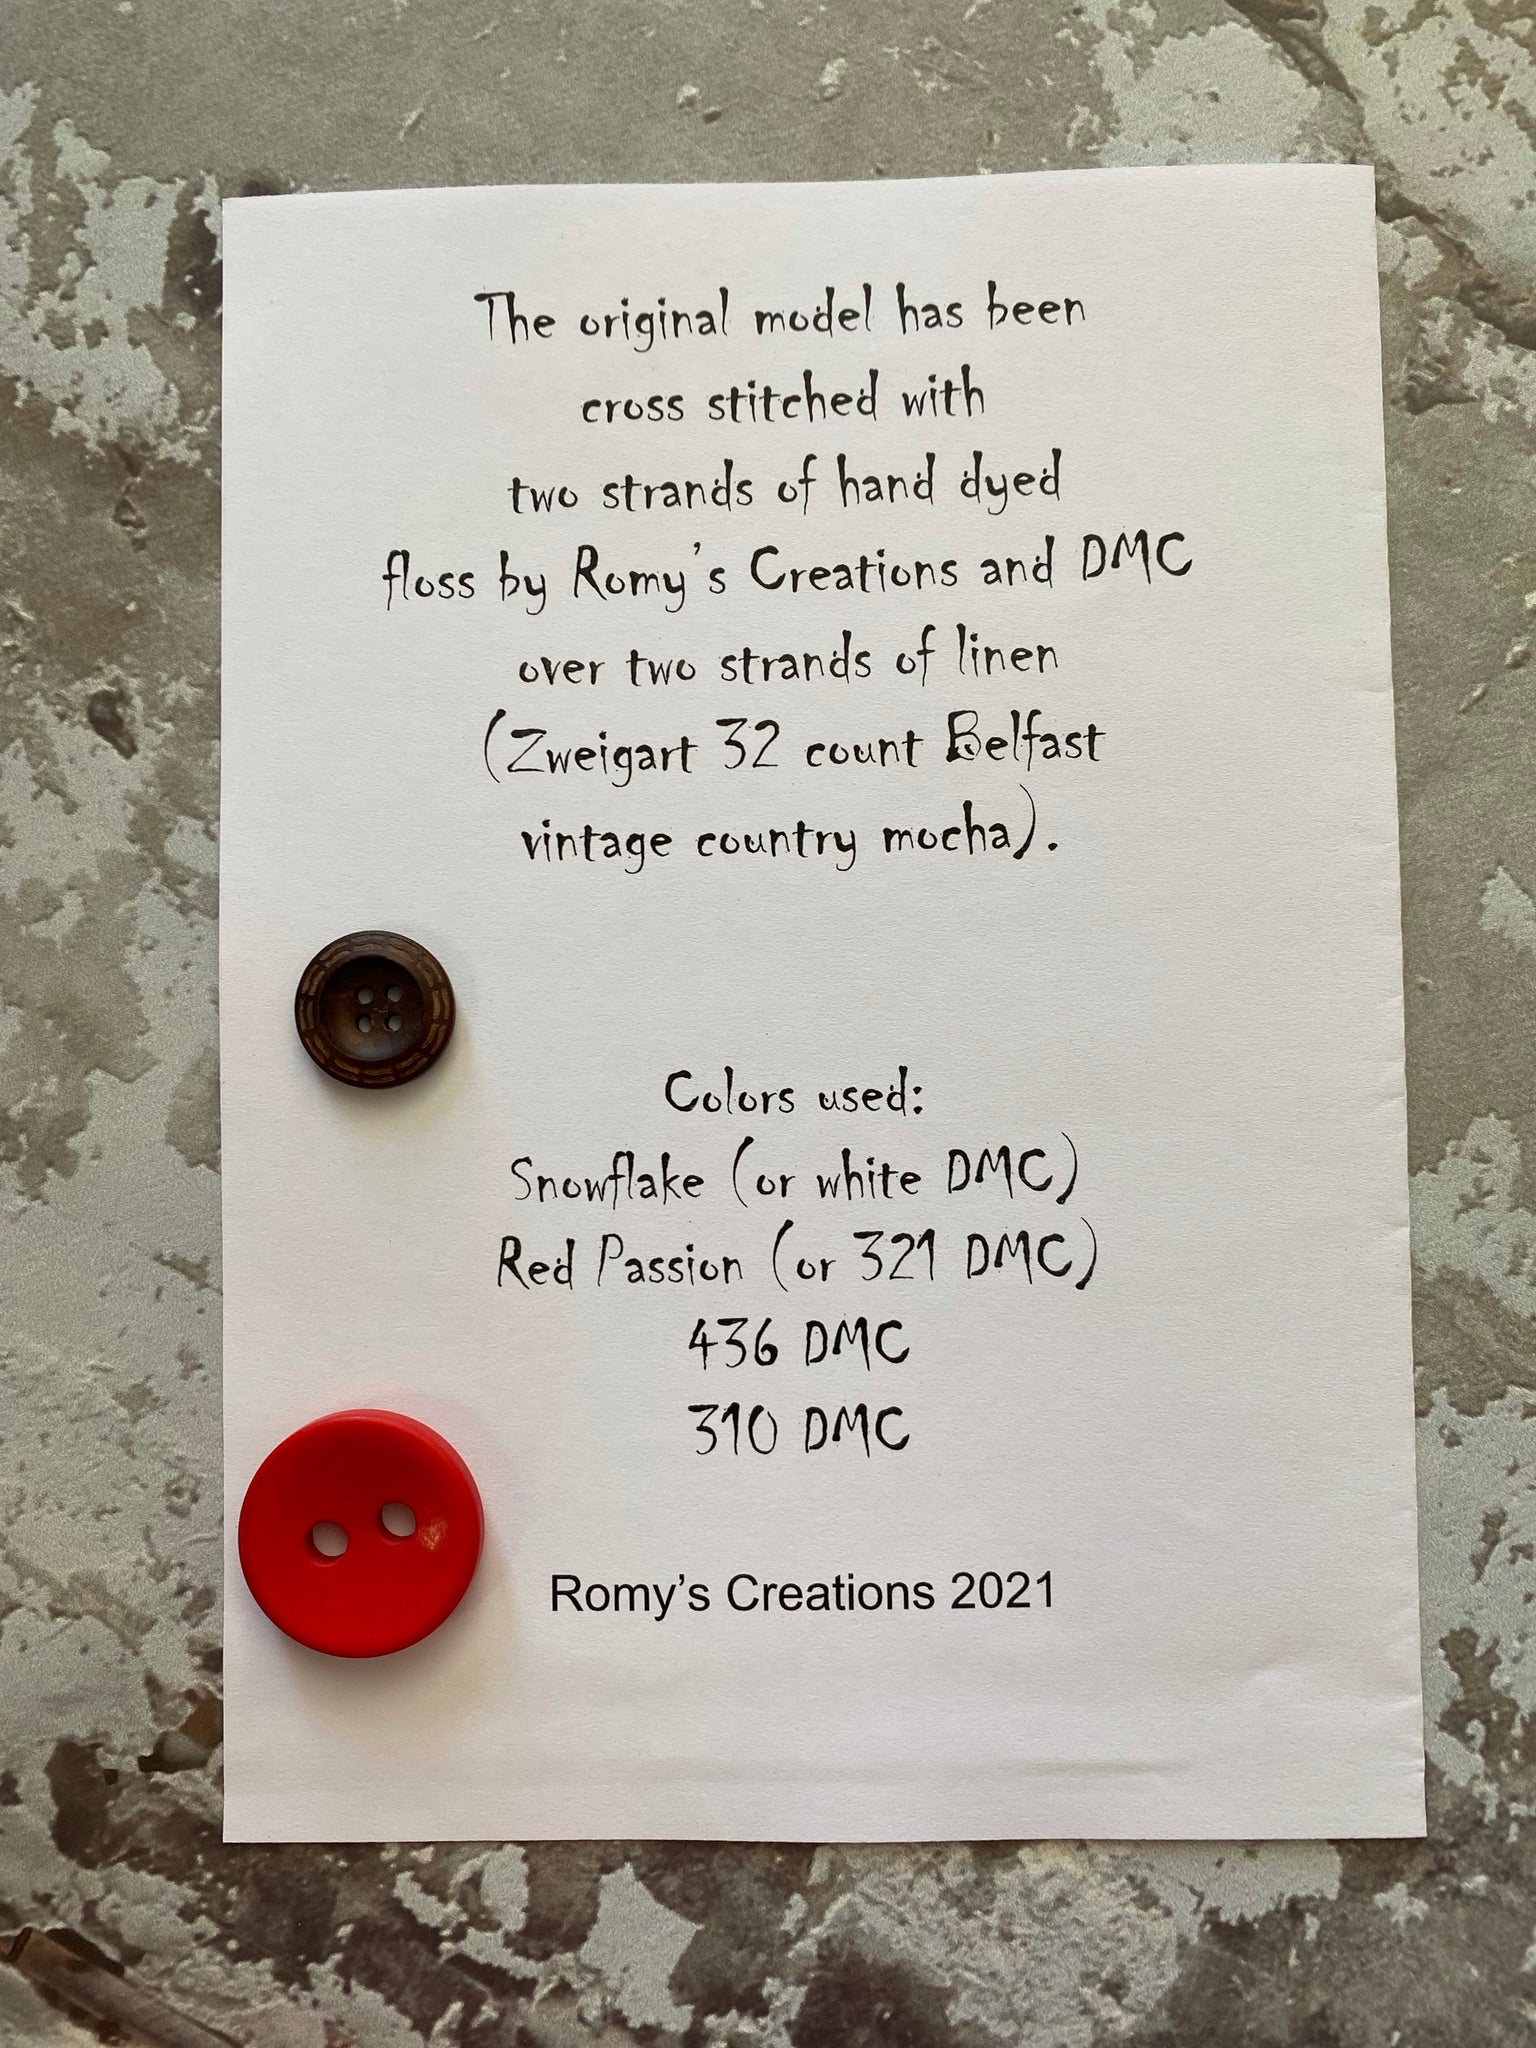 The original model has been
cross stitched with
two strands of hand dyed
floss by Romy's Creations and DMC
over two strands of linen
(Zweigart 32 count Belfast
vintage country mocha).
Colors used:
Snowflake (or white DMC)
Red Passion (or 321 DMC)
436 DMC
310 DMC
Romy's Creations 2021